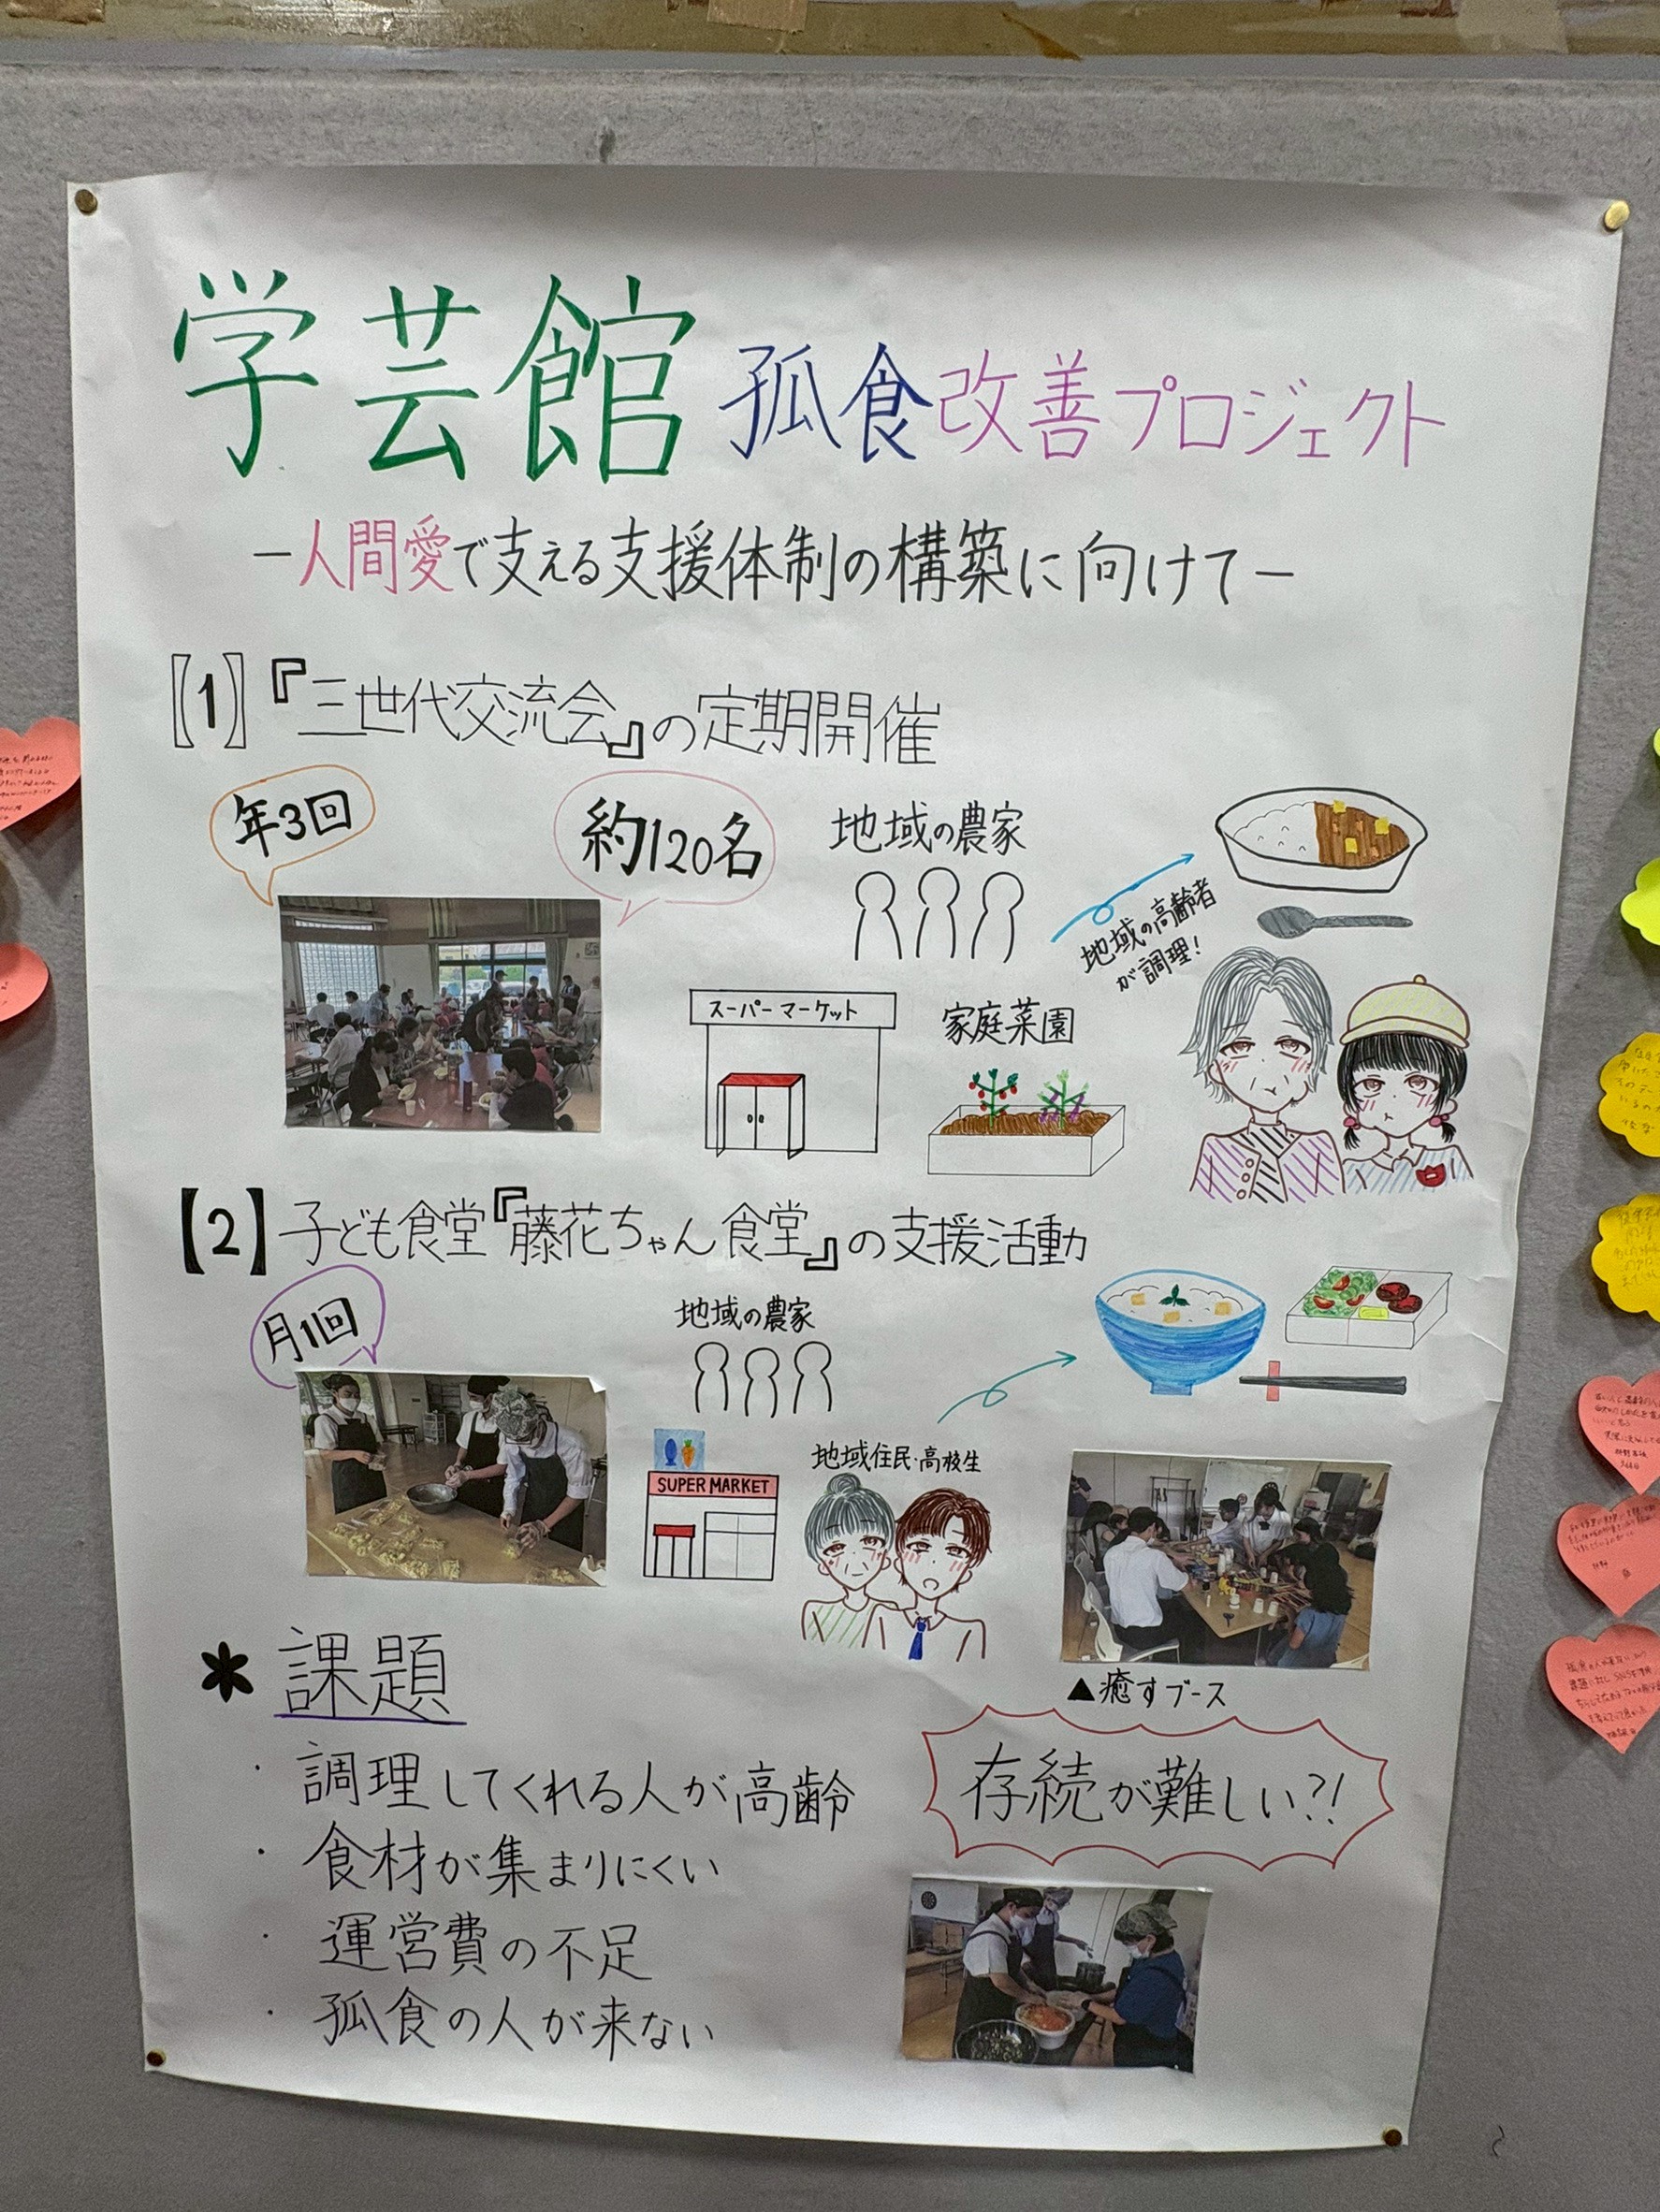 学芸館 孤食改善プロジェクト
－人間愛で支える支援体制の構築に向けて－
【1】『三世代交流会』の定期開催
年3回
約120名
地域の農家
地域の高齢者
が調理!
スーパーマーケット
家庭菜園
【2】子ども食堂『藤花ちゃん食堂』の支援活動
月1回
地域の農家
SUPER MARKET
地域住民・高校生
▲癒すブース
* 課題
・調理してくれる人が高齢
・食材が集まりにくい
・運営費の不足
・孤食の人が来ない
存続が難しい?!